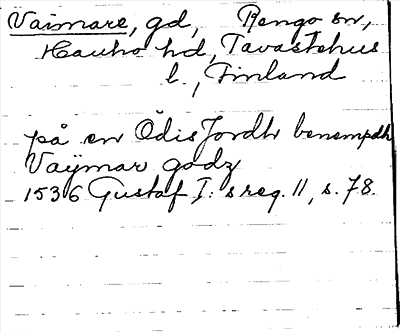 Vaimare, gd, Rengo sn,
Hauho hd, Tavastehus
l., Finland
på en ÖdisJordh benempdh
Vaÿmar godz
1536 Gustaf I: s reg. 11, s. 78.